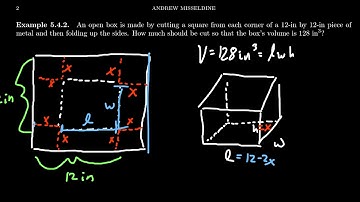 2 ANDREW MISSELDINE
Example 5.4.2. An open box is made by cutting a square from each corner of a 12-in by 12-in piece of
metal and then folding up the sides. How much should be cut so that the box's volume is 128 in³?
V = 128 in³ = l w h
x x
x x
w
x l x
x x
2 in
12 in
h x
w
l = 12-2x